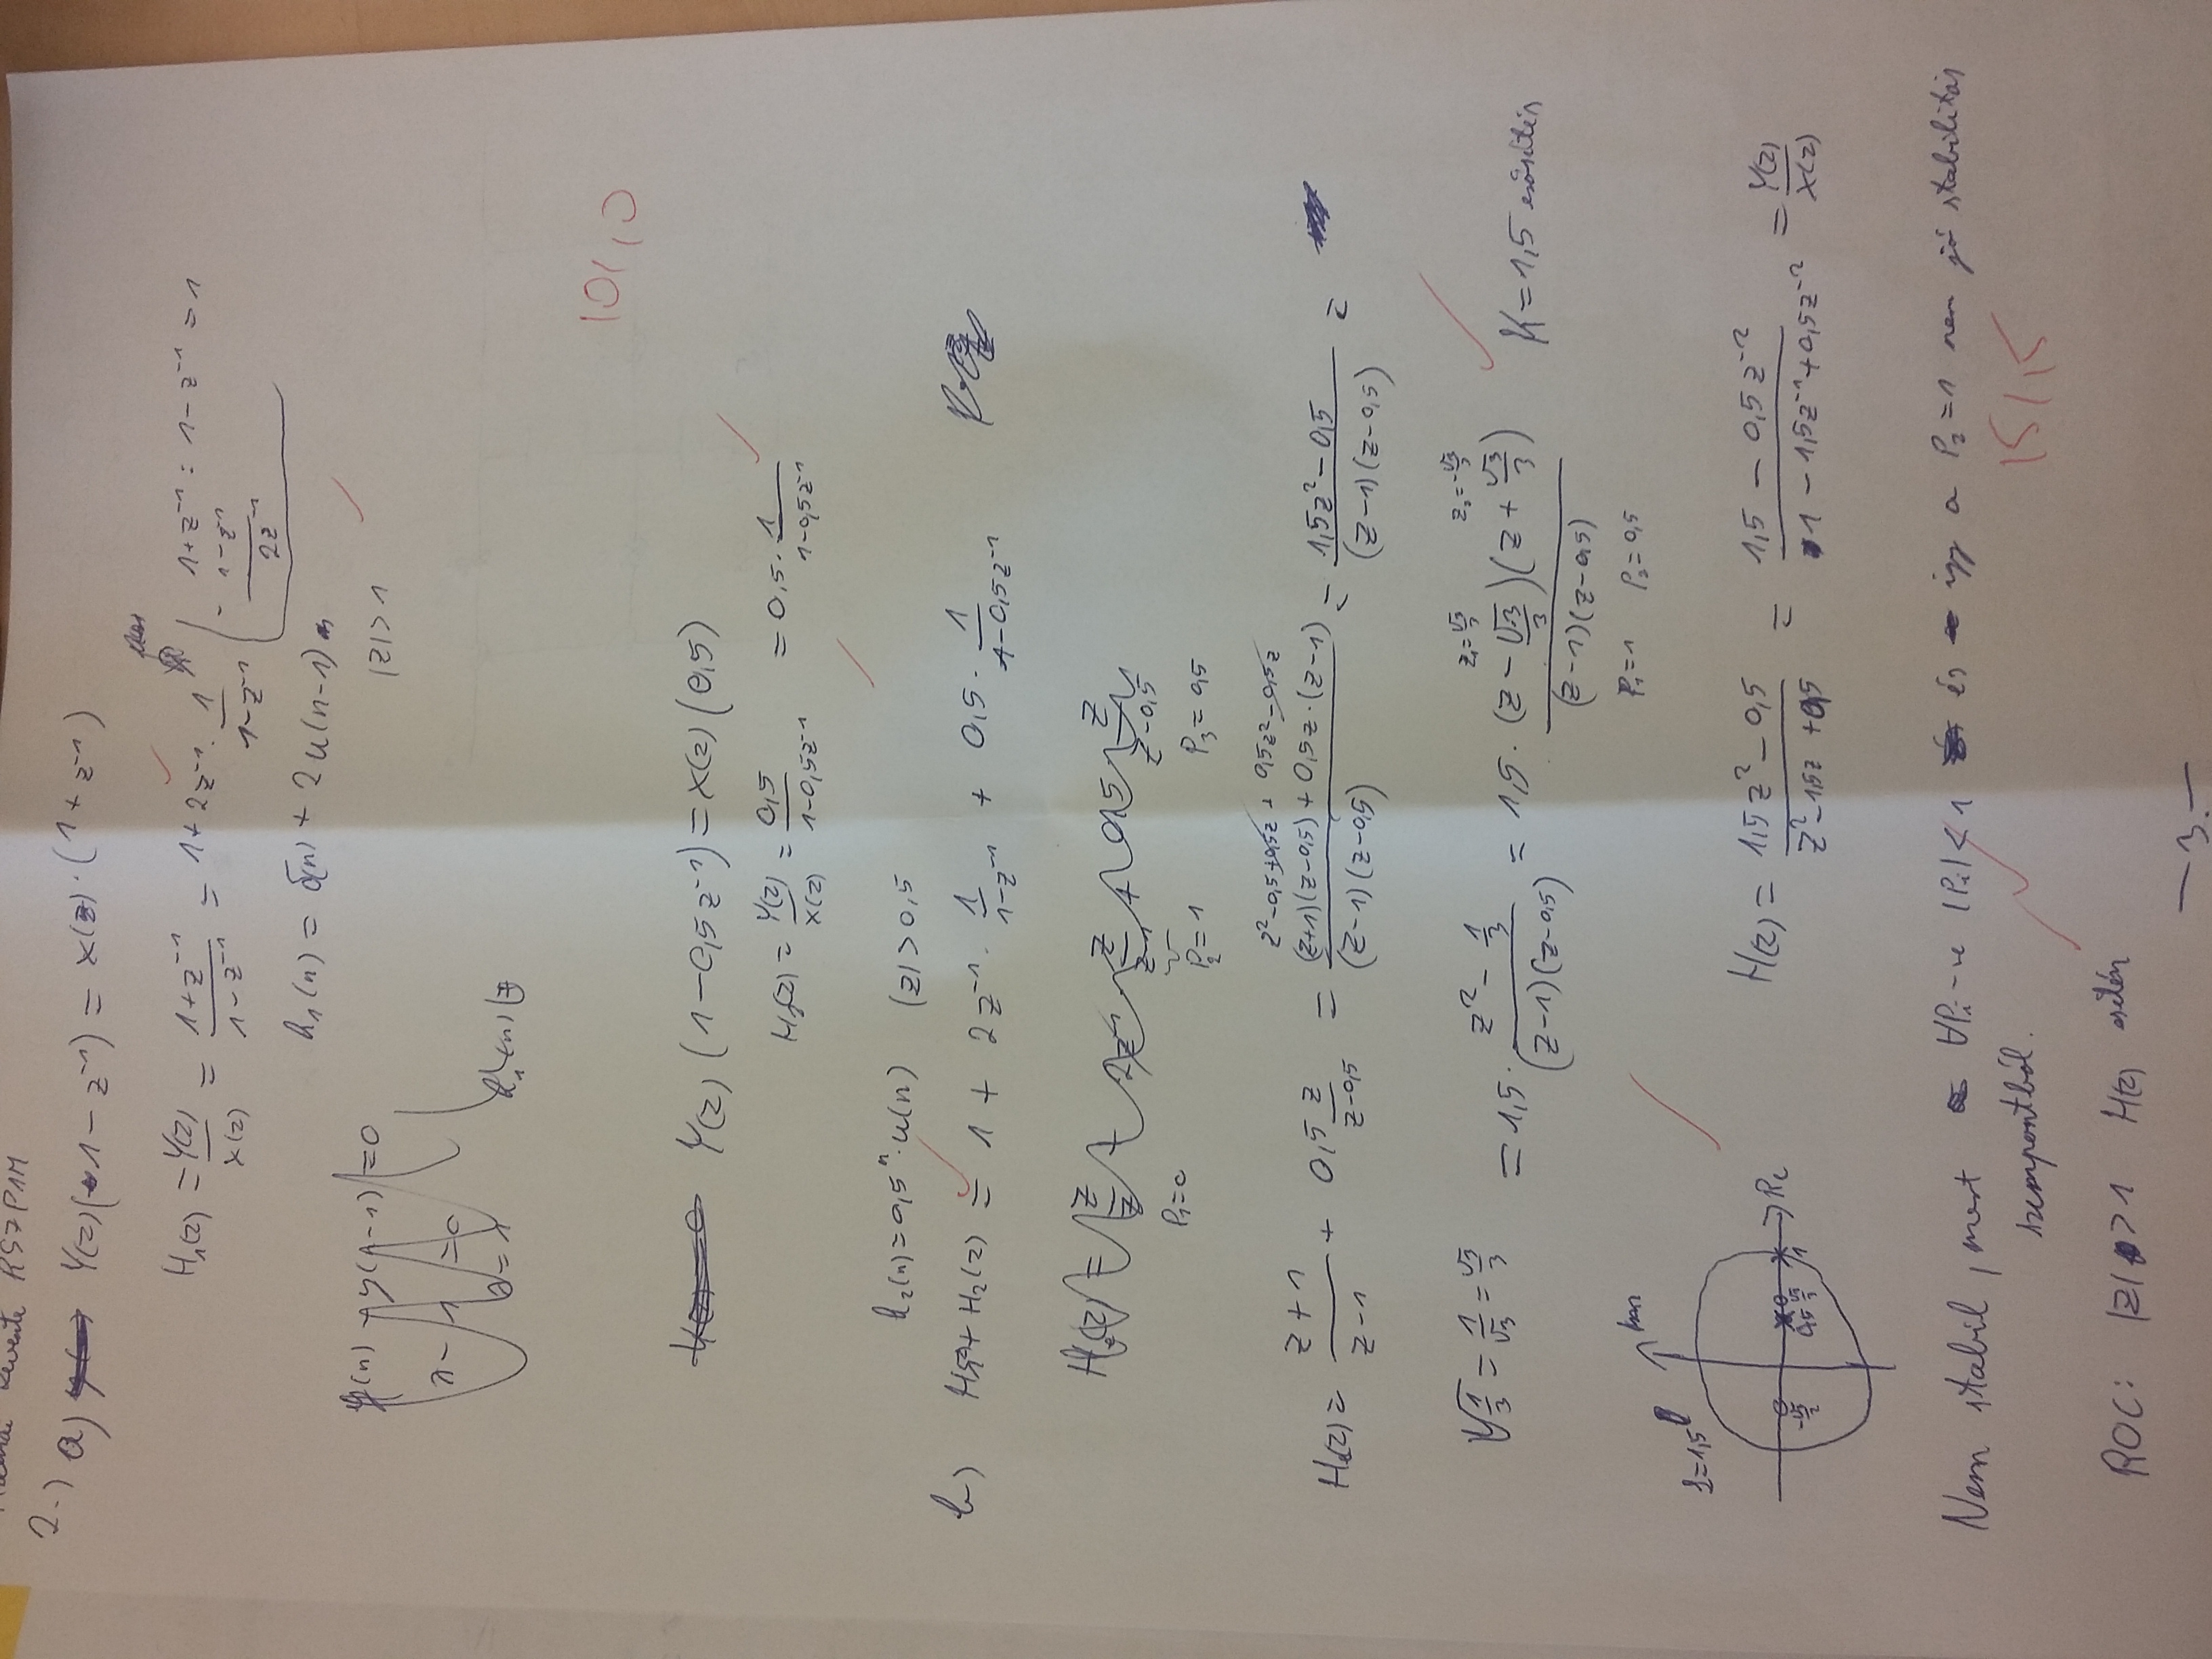 RS7P1M
2.) a) Y(z)(1 - z⁻¹) = X(z)·(1 + z⁻¹)
H₁(z) = Y(z)/X(z) = (1+z⁻¹)/(1-z⁻¹) = 1 + 2z⁻¹·1/(1-z⁻¹)
1+z⁻¹ : 1-z⁻¹ = 1
- 1-z⁻¹
2z⁻¹
h₁(n) = δ(n) + 2u(n-1)
|z|>1
10/10
Y(z)(1-0,5z⁻¹) = X(z)(0,5)
H₂(z) = Y(z)/X(z) = 0,5/(1-0,5z⁻¹) = 0,5·1/(1-0,5z⁻¹)
h₂(n) = 0,5ⁿ·u(n) |z|>0,5
b) H₁(z) + H₂(z) = 1 + 2z⁻¹·1/(1-z⁻¹) + 0,5·1/(1-0,5z⁻¹)
P₁=0 P₂=1 P₃=0,5
z²-0,5+0,5z + 0,5z²-0,5z
H(z) = (z+1)/(z-1) + 0,5 z/(z-0,5) = ((z+1)(z-0,5)+0,5z·(z-1))/((z-1)(z-0,5)) = (1,5z²-0,5)/((z-1)(z-0,5)) =
z₁=√3/3 z₂=-√3/3
√(1/3) = 1/√3 = √3/3 = 1,5·(z²-1/3)/((z-1)(z-0,5)) = 1,5·((z-√3/3)(z+√3/3))/((z-1)(z-0,5)) K=1,5 erősítés
P₁=1 P₂=0,5
Im
Re
0,5
1
H(z) = (1,5z²-0,5)/(z²-1,5z+0,5) = (1,5-0,5z⁻²)/(1-1,5z⁻¹+0,5z⁻²) = Y(z)/X(z)
Nem stabil, mert ∀Pᵢ-re |Pᵢ|<1 és így a P₂=1 nem jó stabilitás
szempontból.
15/15
ROC: |z|>1 H(z) esetén
-3.-